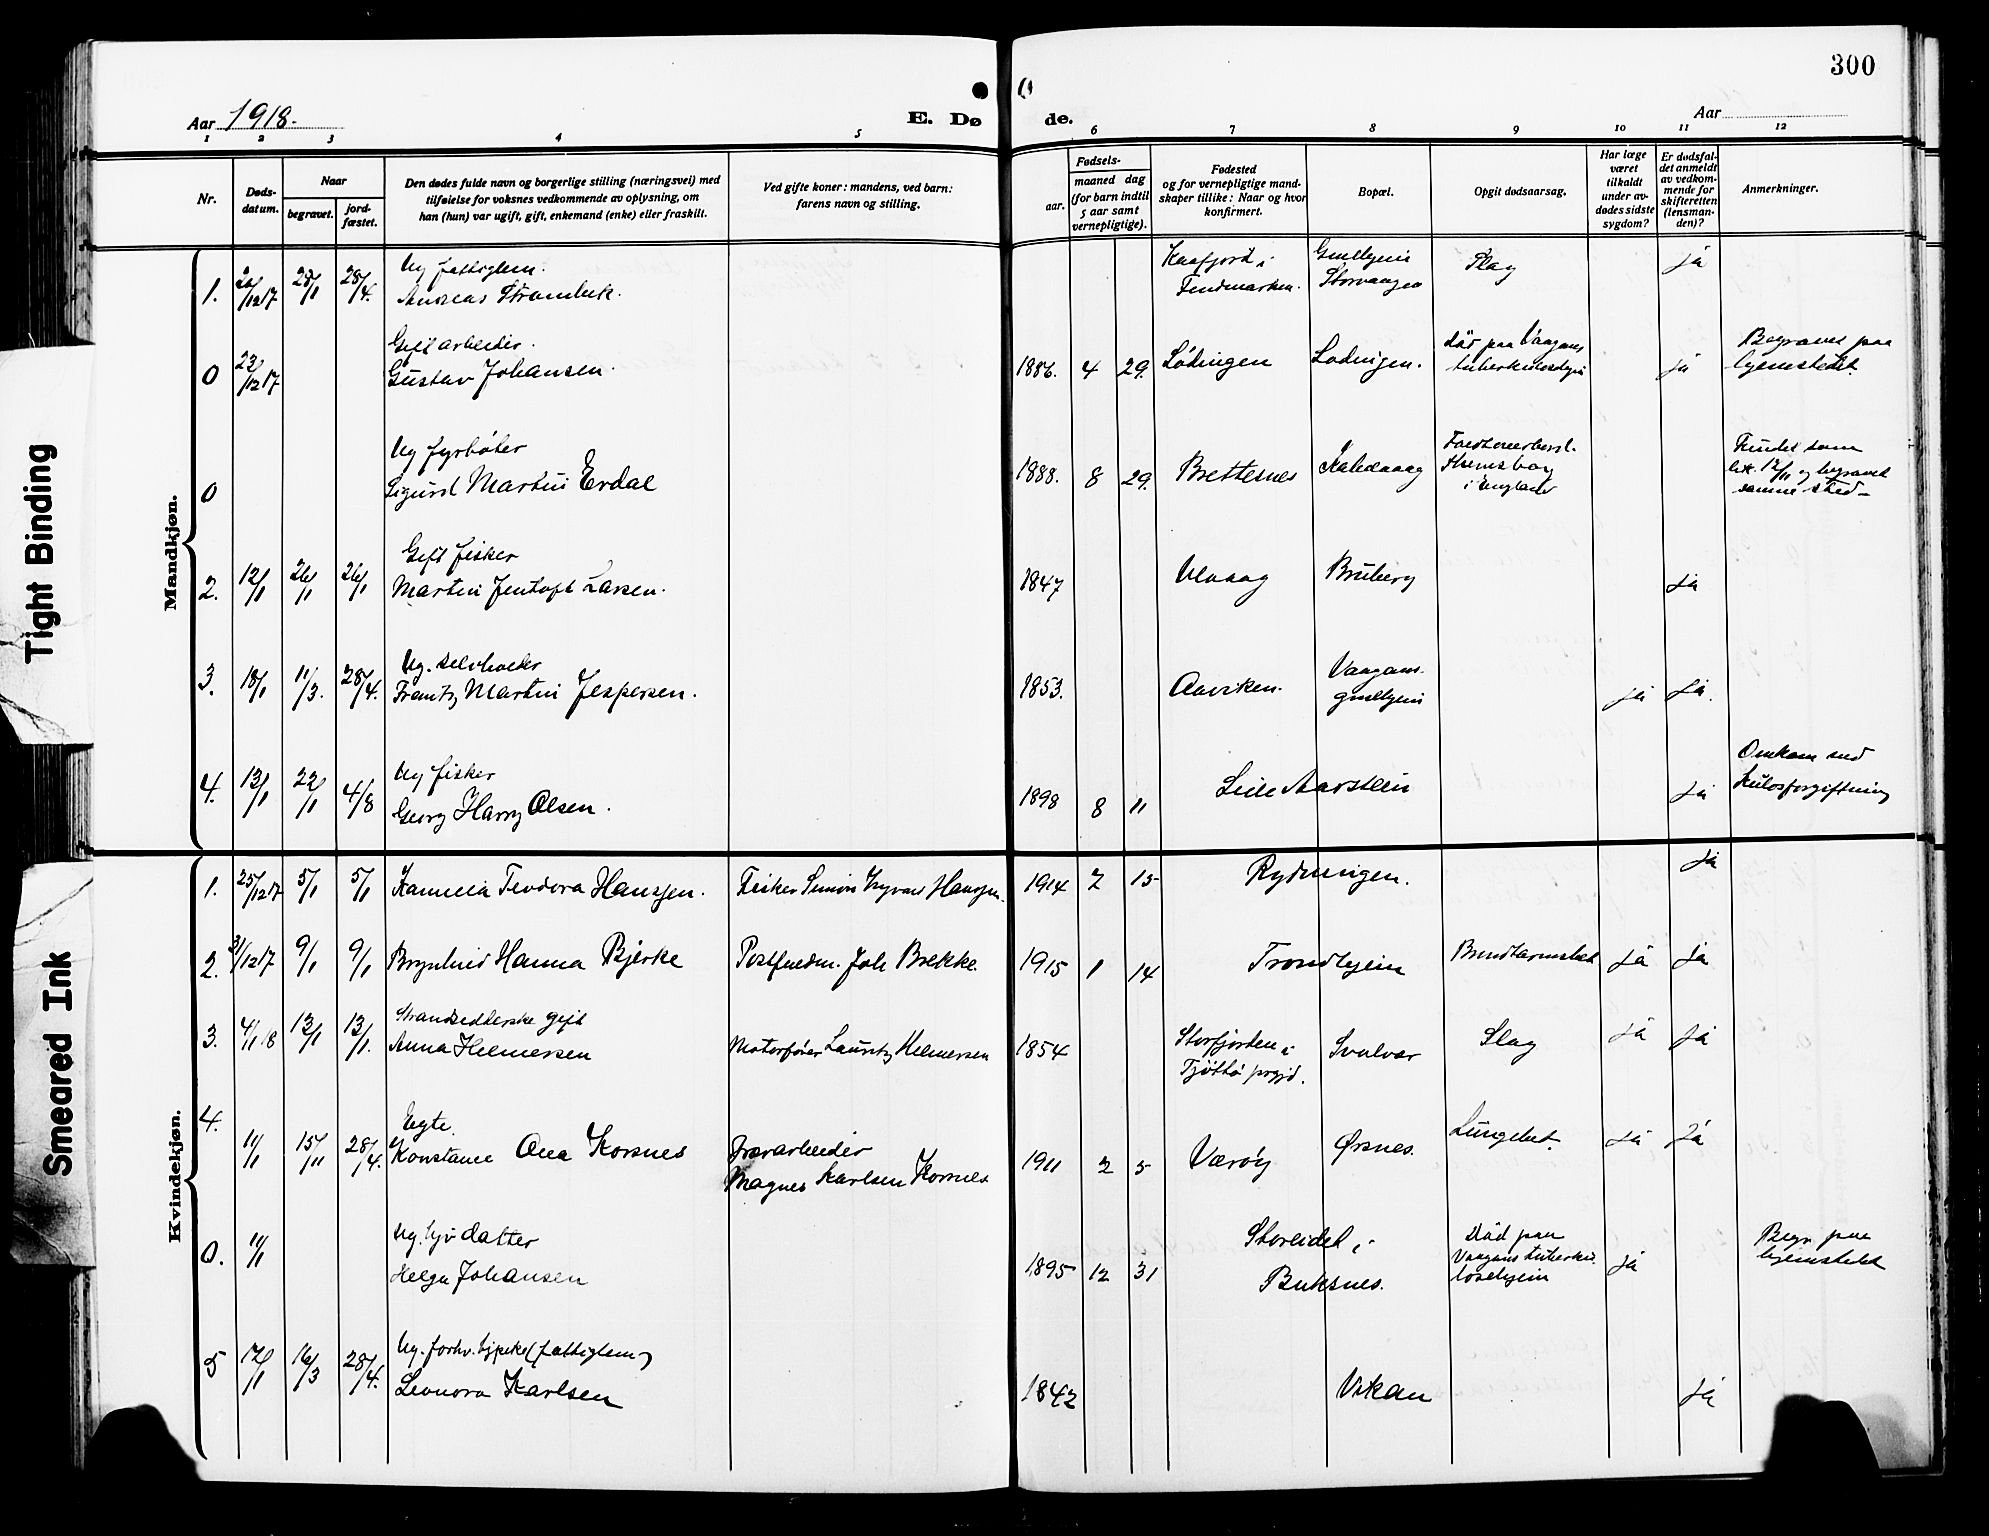 300
Aar 1918.
E. Dø
de.
Aar
1 2 3 4 5 6 7 8 9 10 11 12
Nr.
Døds-
datum.
Naar
begravet.
jord-
fæstet.
Den dødes fulde navn og borgerlige stilling (næringsvei) med
tilføielse for voksnes vedkommende av oplysning, om
han (hun) var ugift, gift, enkemand (enke) eller fraskilt.
Ved gifte koner: mandens, ved barn:
farens navn og stilling.
Fødsels-
aar.
maaned dag
(for barn indtil
5 aar samt
vernepligtige).
Fødested
og for vernepligtige mand-
skaper tillike: Naar og hvor
konfirmert.
Bopæl.
Opgit dødsaarsag.
Har læge
været
tilkaldt
under av-
dødes sidste
sygdom?
Er dødsfal-
det anmeldt
av vedkom-
mende for
skifteretten
(lensman-
den)?
Anmerkninger.
Mandkjøn.
Ug fattiglem.
1. /12 17 28/1 28/4. Andreas Strømbek.
Kaafjord i
Findmarken.
Gmlhjem
Storvaagen
Slag
ja
Gift arbeider.
0 22/12 17 Gustav Johansen.
1886. 4 29. Lødingen Lødingen.
Død paa Vaagans
tuberkulosehjem
ja
Begravet paa
hjemstedet.
Ug fyrbøter
0 Sigurd Martin Erdal
1888. 8 29. Brettesnes Kalvaag
i England
Fundet som
lik 12/11 og begravet
samme sted
Gift fisker
2. 12/1 26/1 26/1 Martin Jentoft Larsen.
1847 Ulvaag Bruberg ja
Ug. selvholder
3. 18/1 11/3. 28/4. Frantz Martin Jespersen.
1853. Aaviken.
Vaagans
gmlhjem
ja ja.
Ug fisker
4. 13/1 22/1 4/8 Georg Harry Olsen.
1898 8 11 Lille Aarstein ja
Omkom ved
kulosforgiftning
Kvindekjøn.
1. 25/12 17 5/1 5/1 Kamilla Teodora Hanssen. Fisker Simon Yngvar Hanssen.
1914 2 15 Rydningen. ja
2. 31/12 17 9/1 9/1 Brynhild Hanna Bjerke Postfuldm. Joh Brekke.
1915 1 14 Trondhjem Blindtarmsbet ja ja
Strandsidderske gift
3. 4/1 18 13/1 13/1. Anna Helmersen Motorfører Lauritz Helmersen
1854
Storfjorden i
Tjøttø prgjd.
Svolvær Slag ja ja
Egte.
4. 11/1 15/11 28/4. Konstanse Ona Korsnes
Jernarbeider
Magnus Karlsen Korsnes
1911 2 5 Værøy Ørsnes. Lungebet. ja ja
Ug. hjv datter
0. 11/1 Helga Johansen
1895 12 31
Storeidet i
Buksnes.
Død paa
Vaagans tuberku-
losehjem
ja
Begr paa
hjemstedet
Ug. forhv. hjpike (fattiglem)
5 17/1 16/3 28/4. Leonora Karlsen
1842 Vikan ja
Tight Binding
Smeared Ink